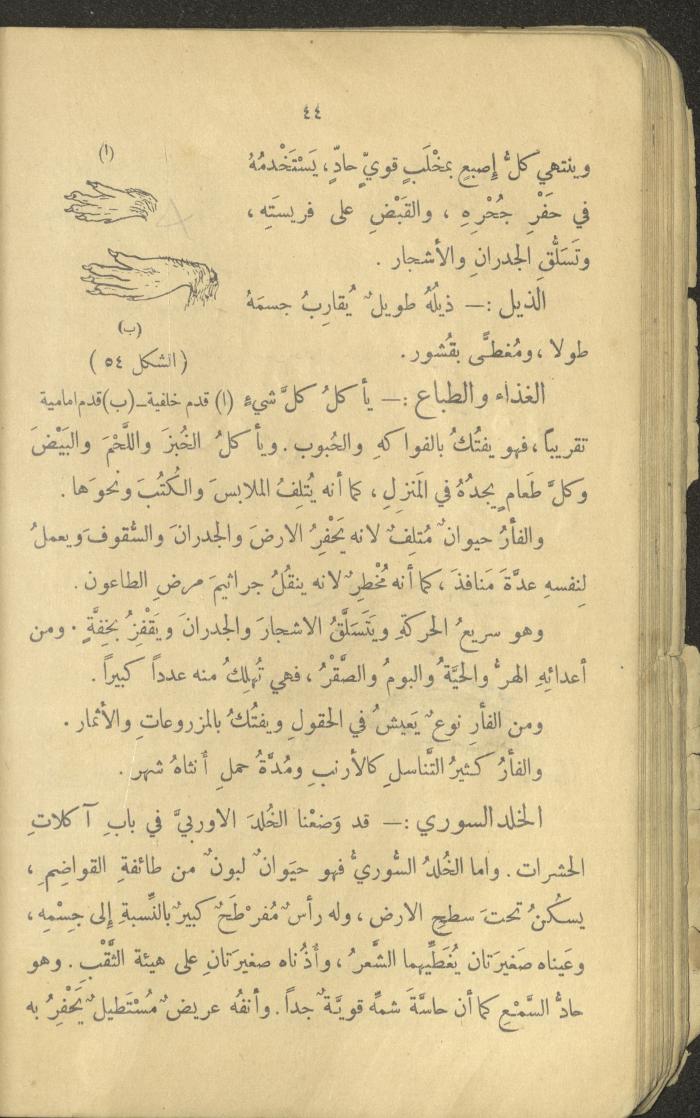 ٤٤
وينتهي كلُّ إِصبعٍ بمخْلَبٍ قويٍّ حادٍّ، يَسْتَخْدمُهُ
(ا)
في حَفْرِ جُحْرِهِ ، والقَبْضِ على فريستَهِ ،
وتَسَلُّقِ الجدرانِ والأشجار .
الذيل :— ذيلُهُ طويلٌ يُقارِبُ جسمَهُ
(ب)
طولا ،ومُغطـًّى بقُشور.
(الشكل ٥٤)
الغذاء والطباع :— يأكلُ كلَّ شيءٍ
(ا) قدم خلفية–(ب)قدم امامية
تقريباً ،فهو يفتُكُ بالفواكهِ والحُبوب . ويأكلُ الخُبزَ واللَّحْمَ والبَيْضَ
وكلَّ طَعامٍ يجدُهُ في المَنزِلِ ، كما أنه يُتلِفُ الملابسَ والكُتُبَ ونحوَها .
والفأرُ حيوانٌ مُتلِفٌ لانه يَحْفِرُ الارضَ والجدرانَ والسُّقوفَ ويعملُ
لِنفسهِ عدَّةَ مَنافذَ ، كما أنه مُخْطِرٌ لانه ينقُلُ جراثيمَ مرضِ الطاعون .
وهو سريعُ الحركةِ ويَتَسَلَّقُ الاشجارَ والجدرانَ ويَقْفِزُ بخِفَّةٍ . ومن
أعدائِهِ الهرُّ والحيَّةُ والبومُ والصَّقْرُ ، فهي تُهلِكُ منه عدداً كبيراً .
ومن الفأرِ نوعٌ يَعيشُ في الحقولِ ويفتُكُ بالمزروعاتِ والأثمار .
والفأرُ كثيرُ التَّناسلِ كالأرنبِ ومُدَّةُ حملِ أنثاهُ شهر .
الخلد السوري :— قد وَضعْنا الخُلدَ الاوربيَّ في بابِ آكلاتِ
الحشرات . واما الخُلدُ السُّوريُّ فهو حيَوانٌ لبونٌ من طائفةِ القواضِمِ ،
يسكُنُ تحتَ سطحِ الارض ، وله رأسٌ مُفرْطَحٌ كبيرٌ بالنِّسبةِ إلى جِسْمِهِ ،
وعَيناه صَغيرَتان يُغَطِّيهِما الشَّعرُ ، وأذُناه صغيرَتانِ على هيئة الثَّقْبِ . وهو
حادُّ السَّمْعِ كما أن حاسَّةَ شمِّه قويَّةٌ جداً . وأنفُه عريضٌ مُسْتَطيلٌ يَحْفِرُ به